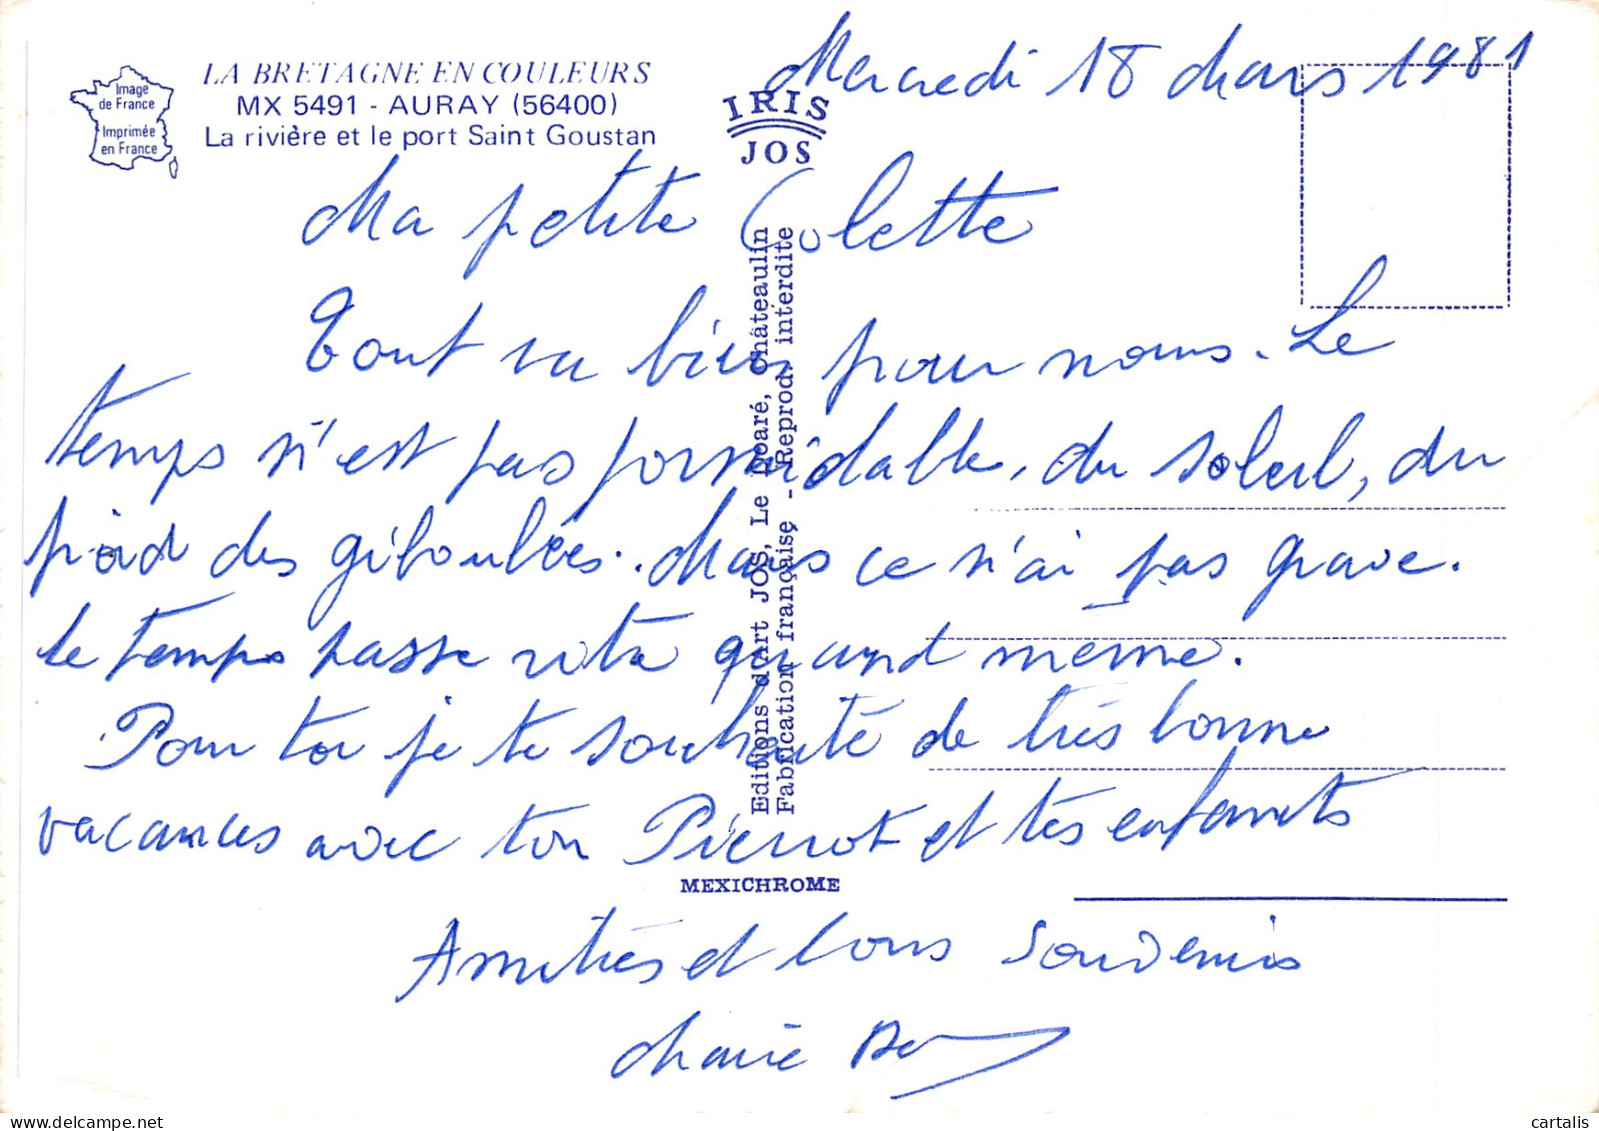 Mercredi 18 Mars 1981
LA BRETAGNE EN COULEURS
MX 5491 - AURAY (56400)
La rivière et le port Saint Goustan
Image
de France
Imprimée
en France
IRIS
JOS
Ma petite Colette
Tout va bien pour nous. Le
temps n'est pas formidable, du soleil, du
froid des giboulées. Mais ce n'ai pas grave.
le temps passe vite quand même.
Pour toi je te souhaite de très bonne
vacances avec ton Pierrot et tes enfants
Amitiés et bons souvenirs
Marie
Editions d'art JOS, Le Doaré, Châteaulin
Fabrication française - Reprod. interdite
MEXICHROME
cartalis